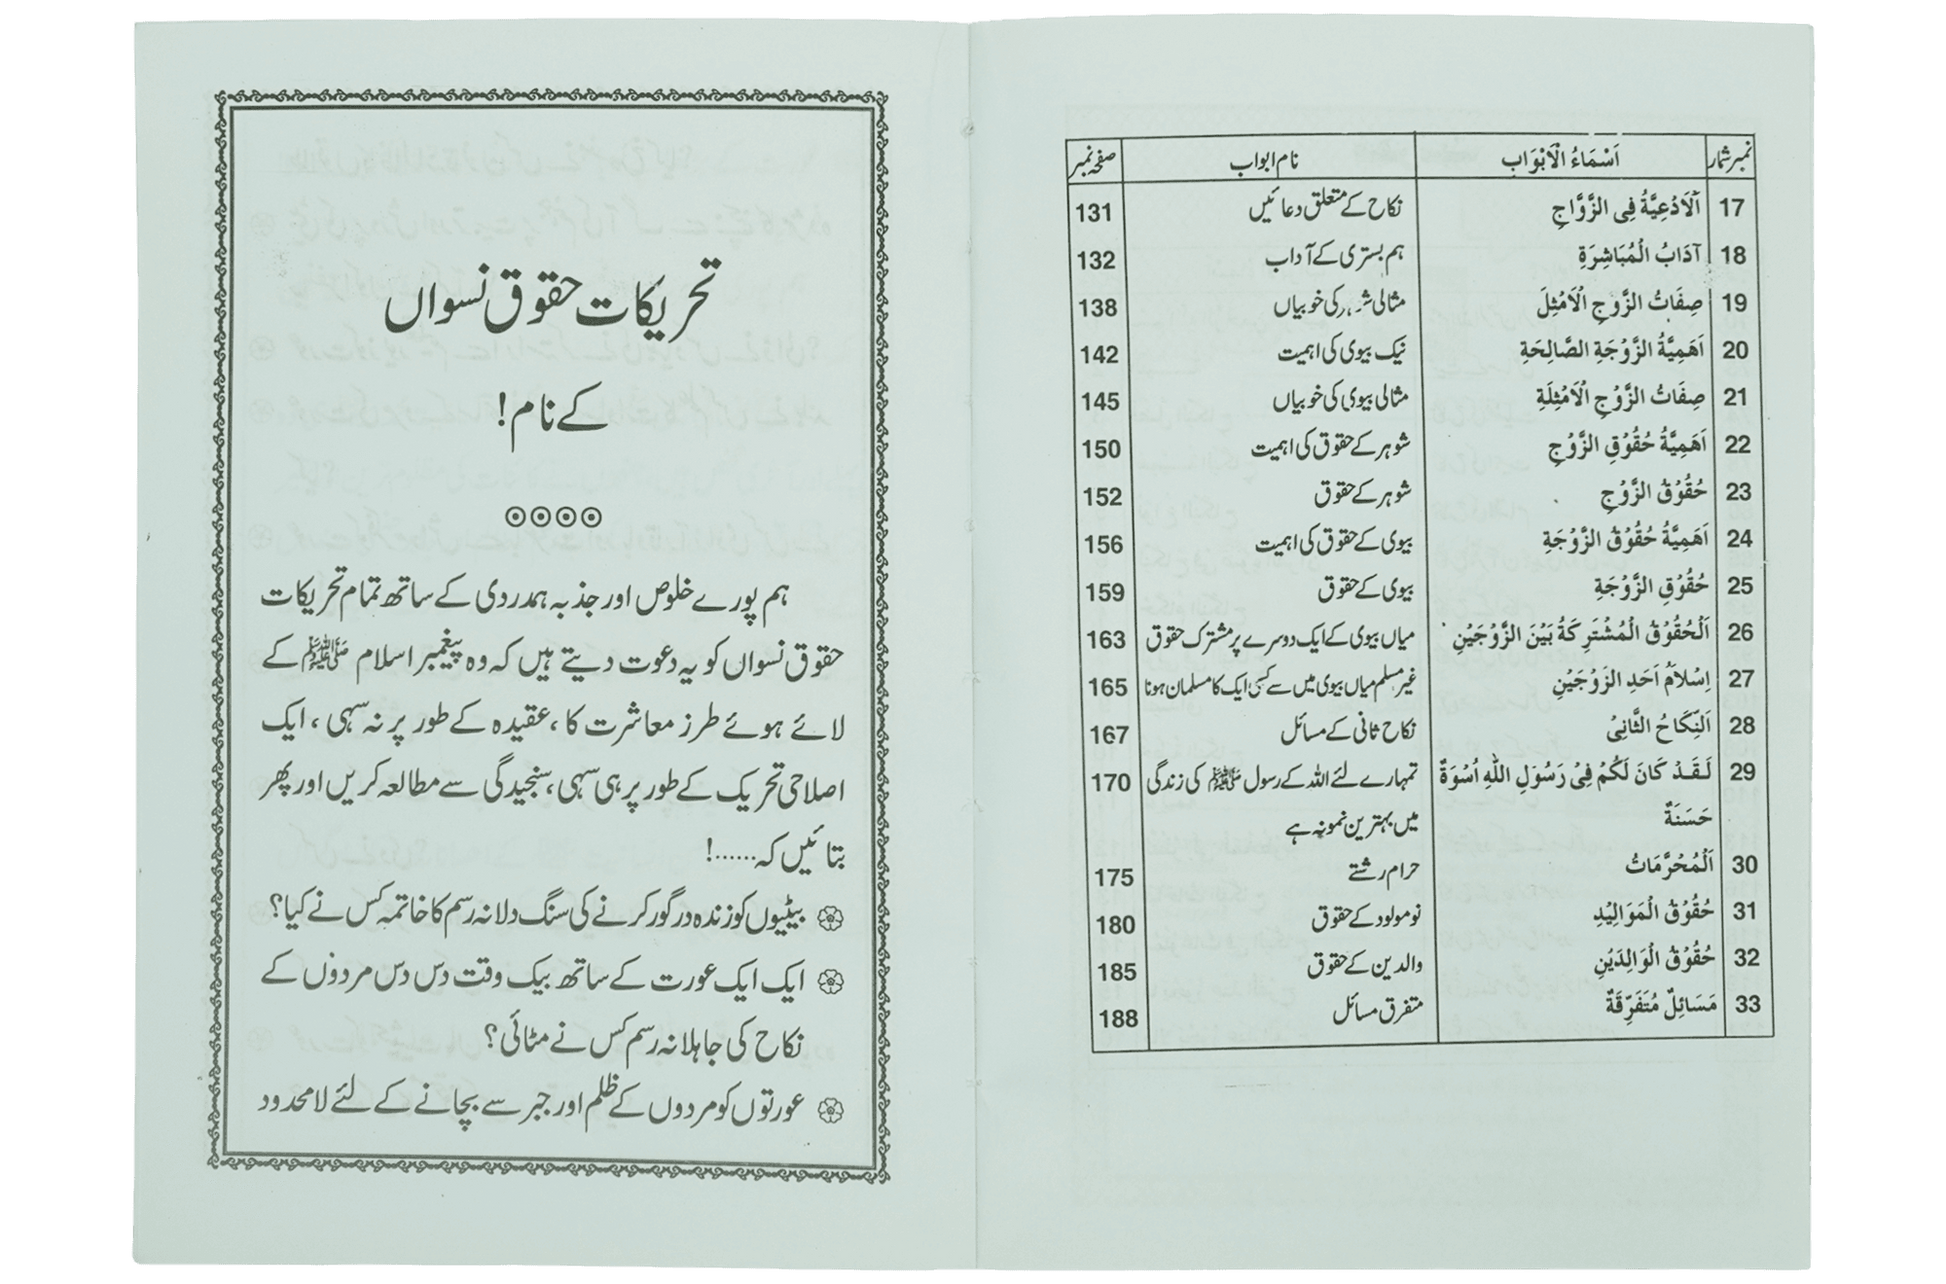 نمبر شمار اَسْمَاءُ الْاَبْوَابِ نام ابواب صفحہ نمبر
17 اَلْاَدْعِيَّةُ فِى الزَّوَاجِ نکاح کے متعلق دعائیں 131
18 آدَابُ الْمُبَاشِرَةِ ہم بستری کے آداب 132
19 صِفَاتُ الزَّوْجِ الْاَمْثِلَ مثالی شوہر کی خوبیاں 138
20 اَهَمِيَّةُ الزَّوْجَةِ الصَّالِحَةِ نیک بیوی کی اہمیت 142
21 صِفَاتُ الزَّوْجِ الْاَمْثِلَةِ مثالی بیوی کی خوبیاں 145
22 اَهَمِيَّةُ حُقُوْقِ الزَّوْجِ شوہر کے حقوق کی اہمیت 150
23 حُقُوْقُ الزَّوْجِ شوہر کے حقوق 152
24 اَهَمِيَّةُ حُقُوْقُ الزَّوْجَةِ بیوی کے حقوق کی اہمیت 156
25 حُقُوْقِ الزَّوْجَةِ بیوی کے حقوق 159
26 اَلْحُقُوْقُ الْمُشْتَرِكَةُ بَيْنَ الزَّوْجَيْنِ میاں بیوی کے ایک دوسرے پر مشترک حقوق 163
27 اِسْلَامُ اَحَدِ الزَوْجَيْنِ غیر مسلم میاں بیوی میں سے کسی ایک کا مسلمان ہونا 165
28 اَلنِّكَاحُ الثَّانِىْ نکاح ثانی کے مسائل 167
29 لَقَدْ كَانَ لَكُمْ فِىْ رَسُوْلِ اللّٰهِ اُسْوَةٌ تمہارے لئے اللہ کے رسول ﷺ کی زندگی 170
حَسَنَةٌ میں بہترین نمونہ ہے
30 اَلْمُحَرَّمَاتُ حرام رشتے 175
31 حُقُوْقُ الْمَوَالِيْدِ نومولود کے حقوق 180
32 حُقُوْقُ الْوَالِدَيْنِ والدین کے حقوق 185
33 مَسَائِلٌ مُتَفَرِّقَةٌ متفرق مسائل 188
تحریکات حقوق نسواں
کے نام!
ہم پورے خلوص اور جذبہ ہمدردی کے ساتھ تمام تحریکات
حقوق نسواں کو یہ دعوت دیتے ہیں کہ وہ پیغمبر اسلام ﷺ کے
لائے ہوئے طرز معاشرت کا، عقیدہ کے طور پر نہ سہی، ایک
اصلاحی تحریک کے طور پر ہی سہی، سنجیدگی سے مطالعہ کریں اور پھر
بتائیں کہ......!
بیٹیوں کو زندہ درگور کرنے کی سنگ دلانہ رسم کا خاتمہ کس نے کیا؟
ایک ایک عورت کے ساتھ بیک وقت دس دس مردوں کے
نکاح کی جاہلانہ رسم کس نے مٹائی؟
عورتوں کو مردوں کے ظلم اور جبر سے بچانے کے لئے لامحدود